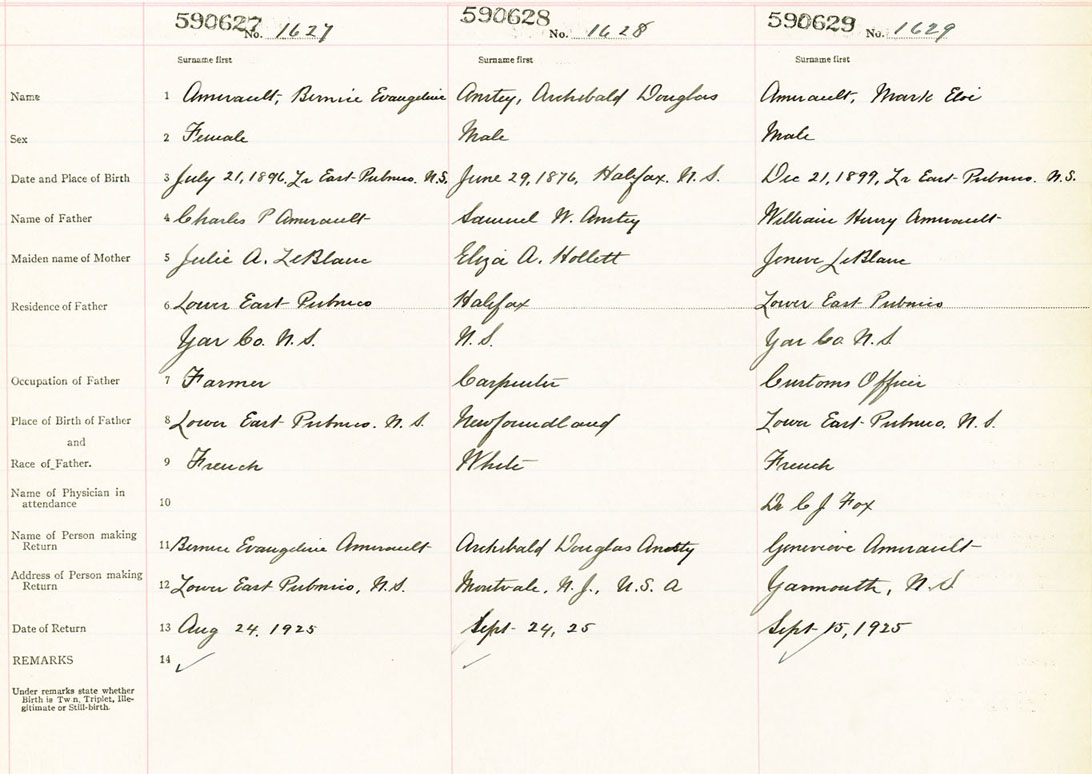 590627 No. 1627 590628 No. 1628 590629 No. 1629
Surname first Surname first Surname first
Name 1 Amirault, Bernice Evangeline Anstey, Archibald Douglas Amirault, Mark Eloi
Sex 2 Female Male Male
Date and Place of Birth 3 July 21, 1896, Lr East Pubnico. N.S. June 29, 1876, Halifax. N.S. Dec 21, 1899, Lr East Pubnico. N.S.
Name of Father 4 Charles P Amirault Samuel W. Anstey William Henry Amirault
Maiden name of Mother 5 Julie A. LeBlanc Eliza A. Hollett Jeneve LeBlanc
Residence of Father 6 Lower East Pubnico Halifax Lower East Pubnico
Yar Co. N.S. N.S. Yar Co N.S
Occupation of Father 7 Farmer Carpenter Customs Officer
Place of Birth of Father 8 Lower East Pubnico. N.S. Newfoundland Lower East Pubnico. N.S.
and
Race of Father. 9 French White French
Name of Physician in
attendance 10 Dr C J Fox
Name of Person making
Return 11 Bernice Evangeline Amirault Archibald Douglas Anstey Genevieve Amirault
Address of Person making
Return 12 Lower East Pubnico, N.S. Montvale, N.J., U.S.A Yarmouth, N.S
Date of Return 13 Aug 24, 1925 Sept 24, 25 Sept 15, 1925
REMARKS 14
Under remarks state whether
Birth is Twin, Triplet, Ille-
gitimate or Still-birth.